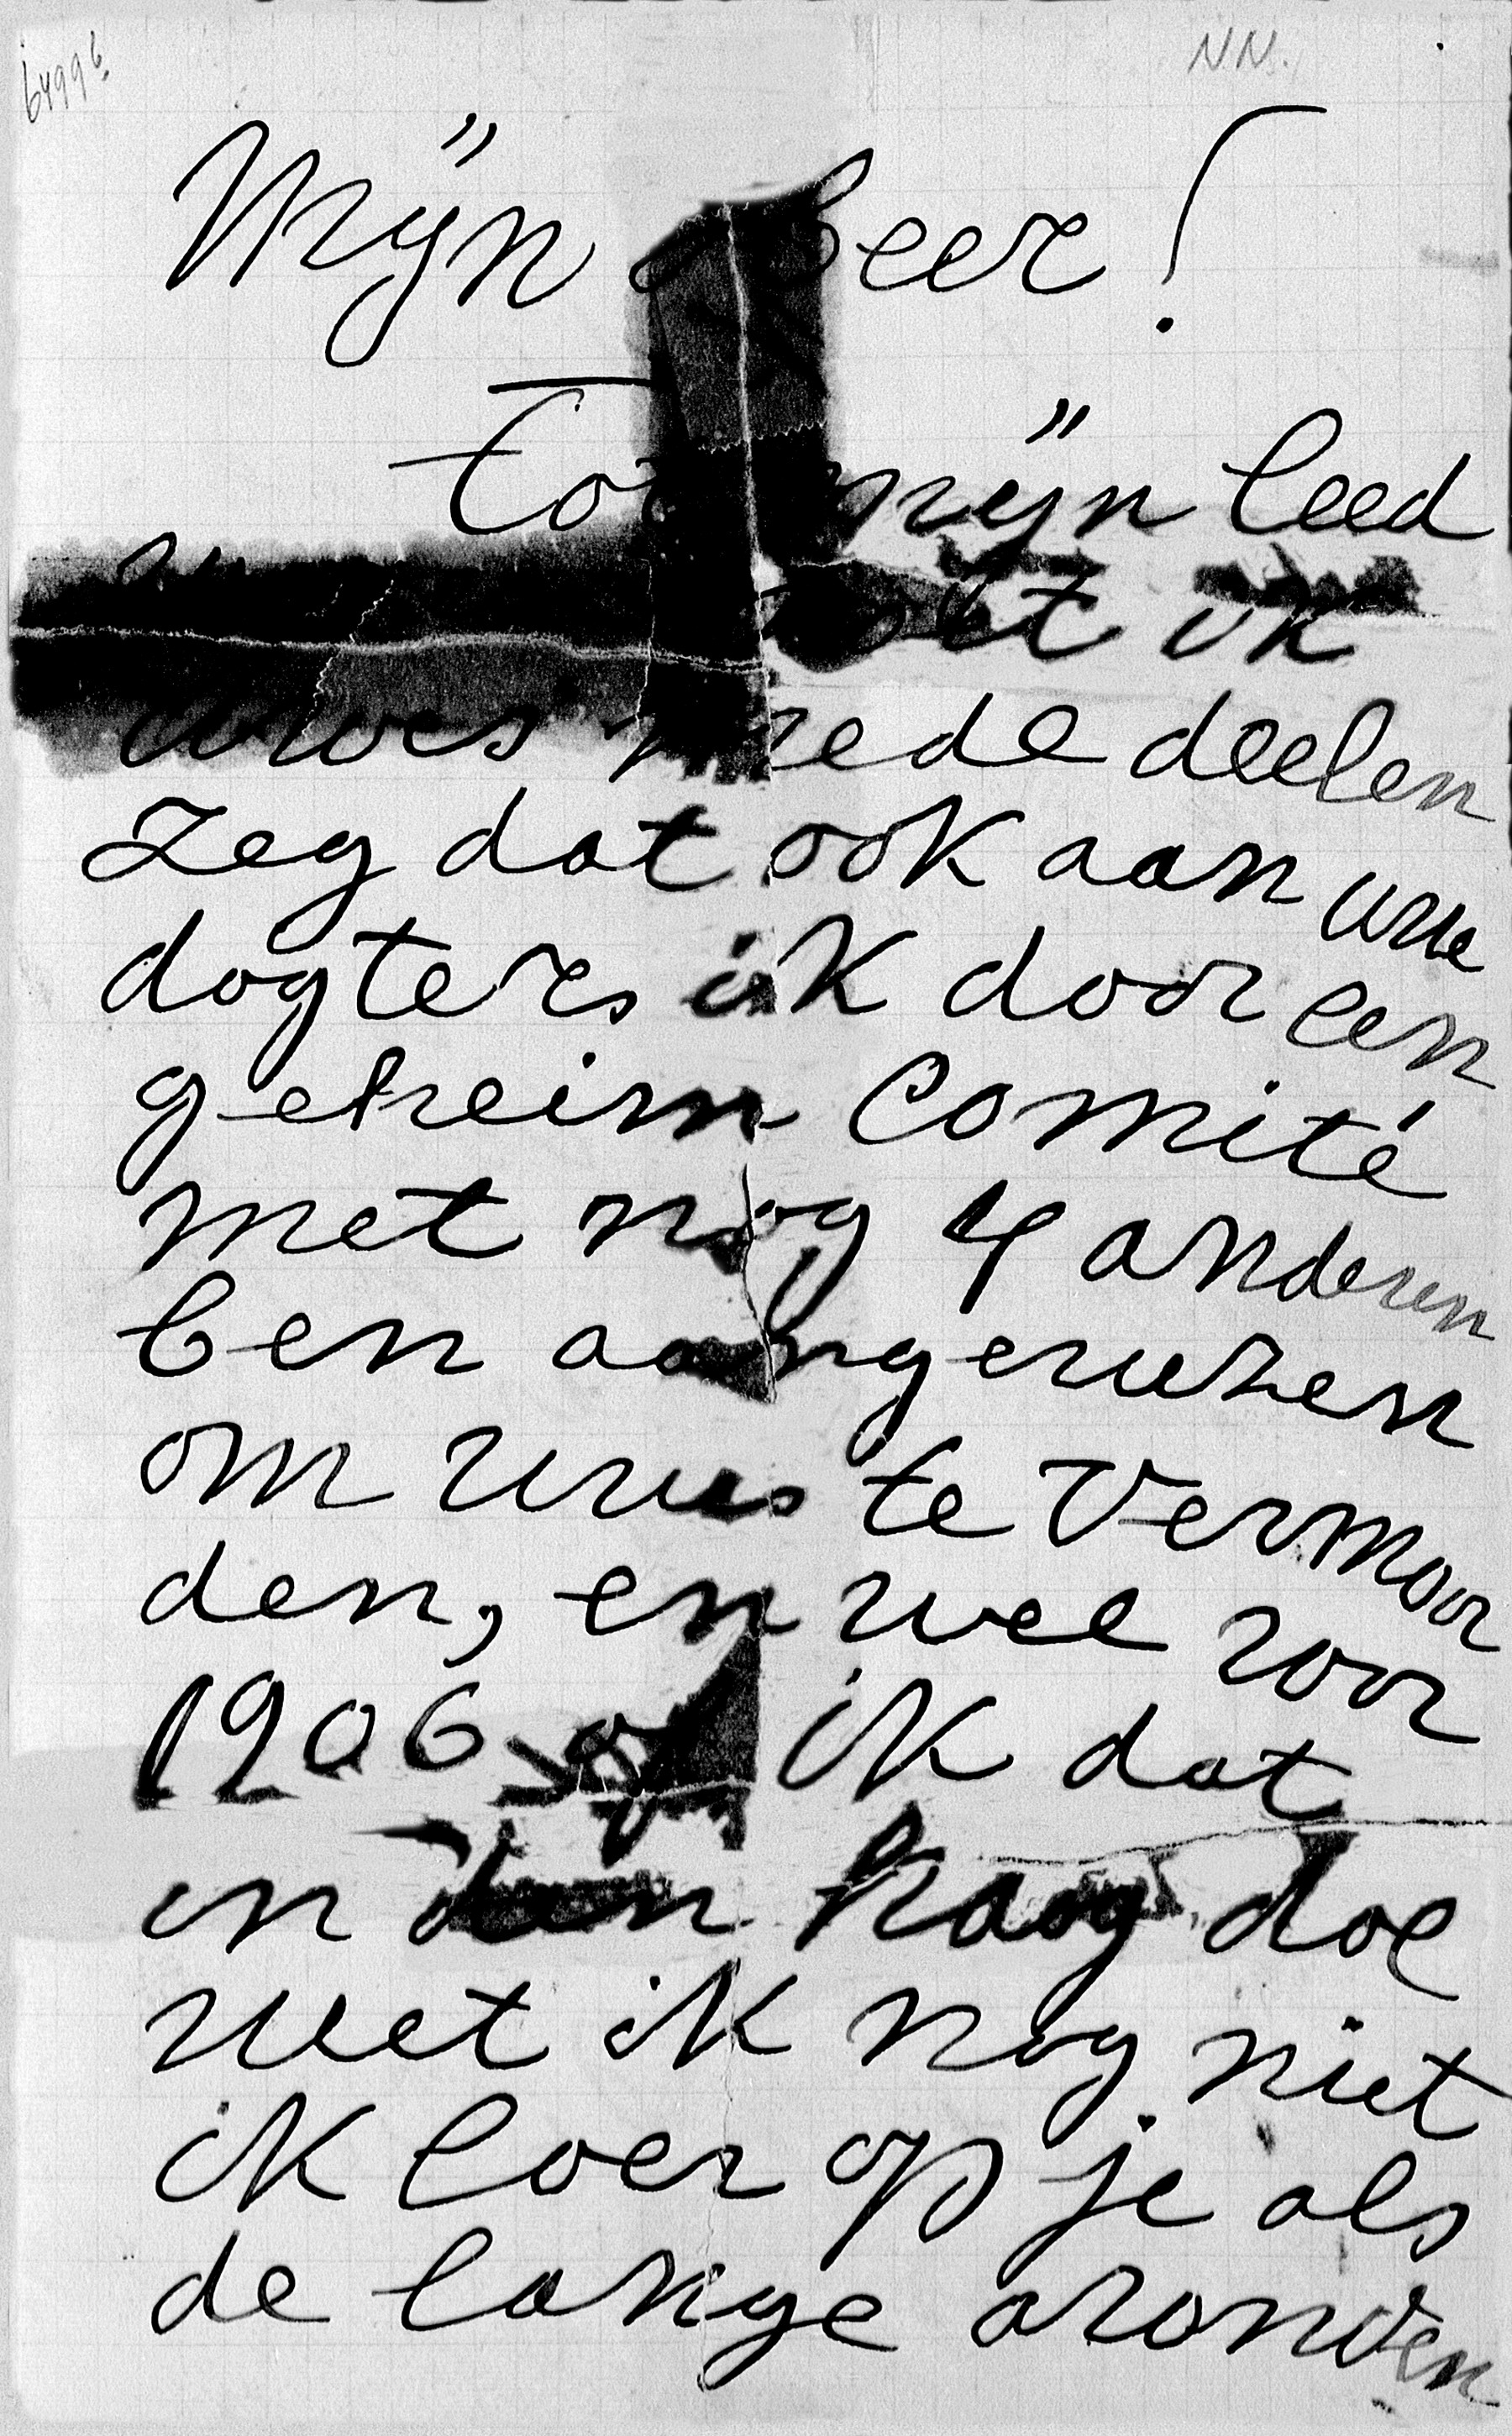 64996
N.N.
Mijn heer!
Tot mijn leed
moet ik
uwes mede deelen
Zeg dat ook aan uwe
dogters ik door een
geheim Comité
met nog 4 anderen
ben aangewezen
om uwes te Vermoor
den, en wel voor
1906 of ik dat
in den haag doe
weet ik nog niet
ik loer op je als
de lange avonden